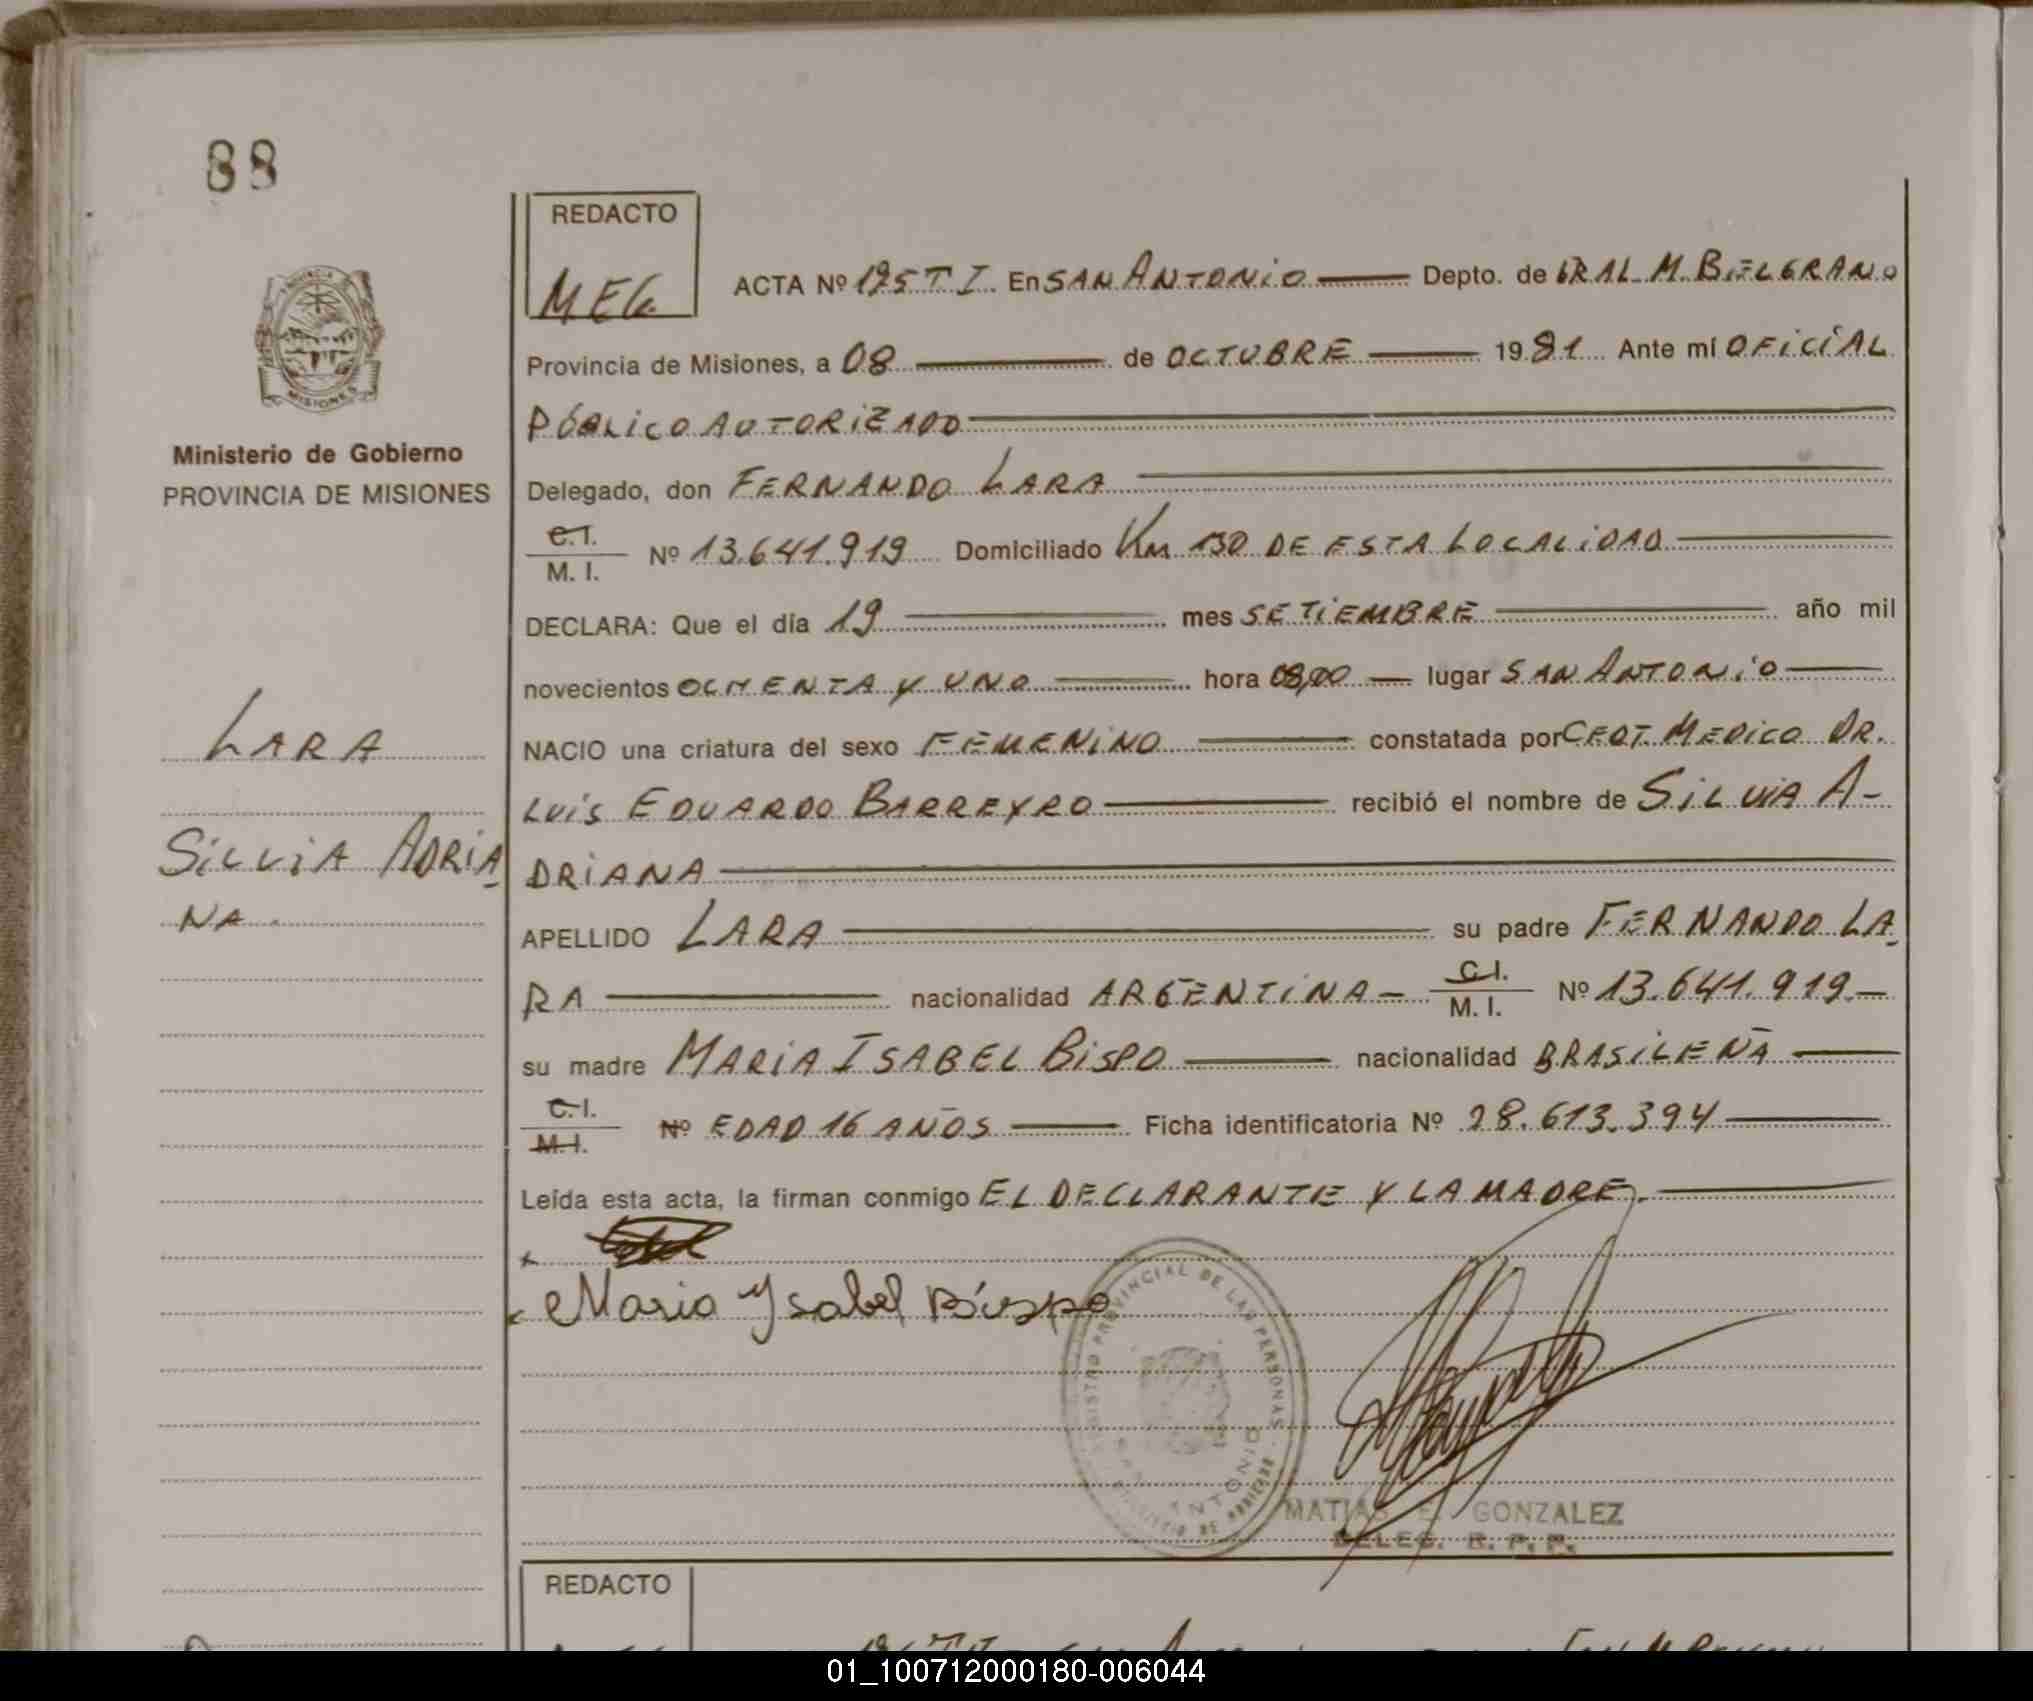 88
REDACTO
MEG.
ACTA Nº 195 T I. En SAN ANTONIO Depto. de GRAL. M. BELGRANO
Provincia de Misiones, a 08 de OCTUBRE 1981 Ante mí OFICIAL
PÚBLICO AUTORIZADO
Ministerio de Gobierno
PROVINCIA DE MISIONES
Delegado, don FERNANDO LARA
C.I.
M. I. Nº 13.641.919 Domiciliado Km 130 DE ESTA LOCALIDAD
DECLARA: Que el día 19 mes SETIEMBRE año mil
novecientos OCHENTA Y UNO hora 08,00 lugar SAN ANTONIO
LARA
NACIO una criatura del sexo FEMENINO constatada por CEOT. MEDICO DR.
LUIS EDUARDO BARREYRO recibió el nombre de SILVIA A-
SILVIA ADRIA-
DRIANA
NA.
APELLIDO LARA su padre FERNANDO LA-
RA nacionalidad ARGENTINA C.I.
M. I. Nº 13.641.919.-
su madre MARIA ISABEL BISPO nacionalidad BRASILEÑA
C.I.
M.I. Nº EDAD 16 AÑOS Ficha identificatoria Nº 28.613.394
Leída esta acta, la firman conmigo EL DECLARANTE Y LA MADRE.
Maria Ysabel Bispo
REGISTRO PROVINCIAL DE LAS PERSONAS
SAN ANTONIO
MATIAS E. GONZALEZ
DELEG. R. P. P.
REDACTO
01_100712000180-006044